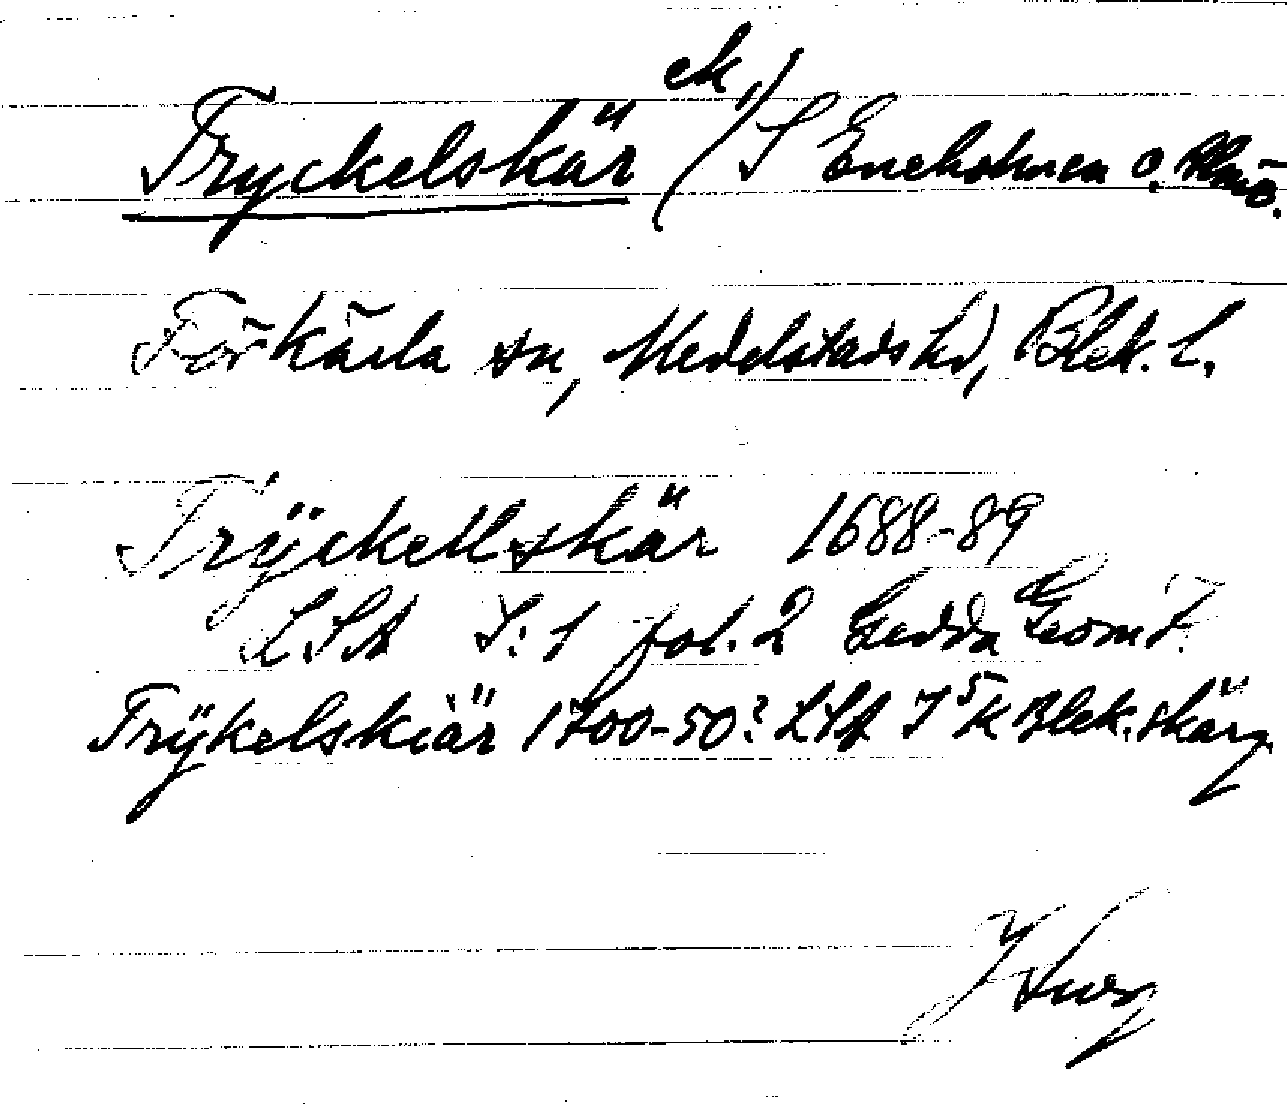 Tryckelskär ek./S Eneholmen o. Almö.
Förkärla sn, Medelstads hd, Blek. l.
Trÿckellskär 1688-89
LSA S:1 fol. 2 Gedda Geom.
Trÿkelskiär 1700-50? LSA K Blek. skärg.